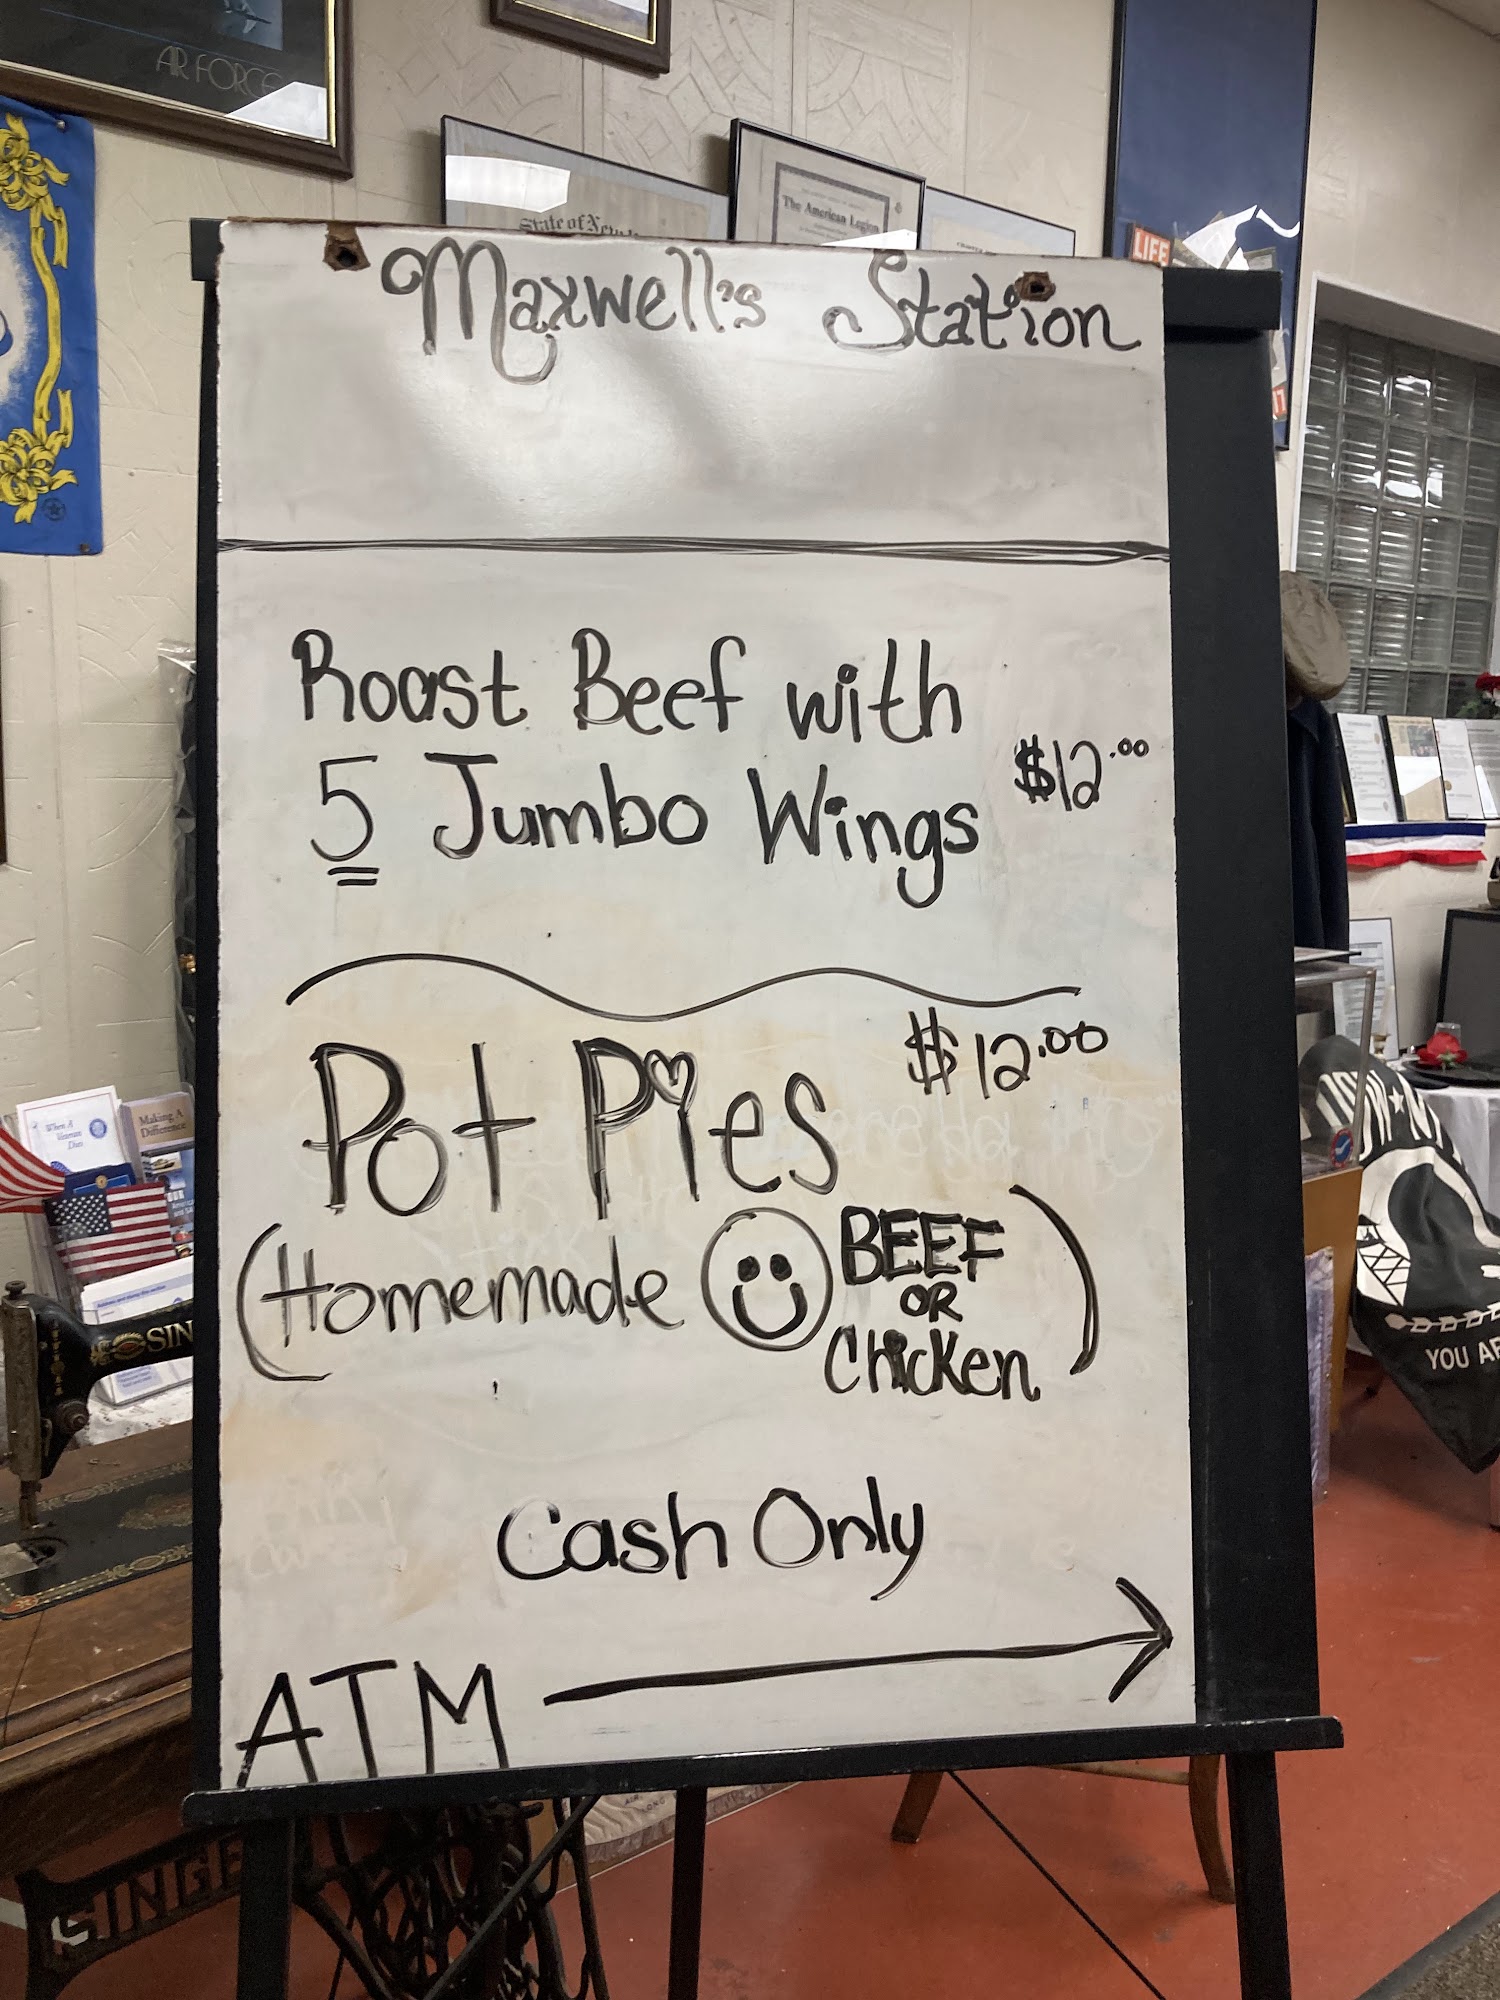 AIR FORCE
State of New
The American Legion
LIFE
Maxwell's Station
Roast Beef with
5 Jumbo Wings
$12.00
Pot Pies
$12.00
(Homemade
BEEF
OR
Chicken)
Cash Only
ATM
When A
Veteran
Dies
Making A
Difference
SIN
SINGE
POW★M
YOU AR